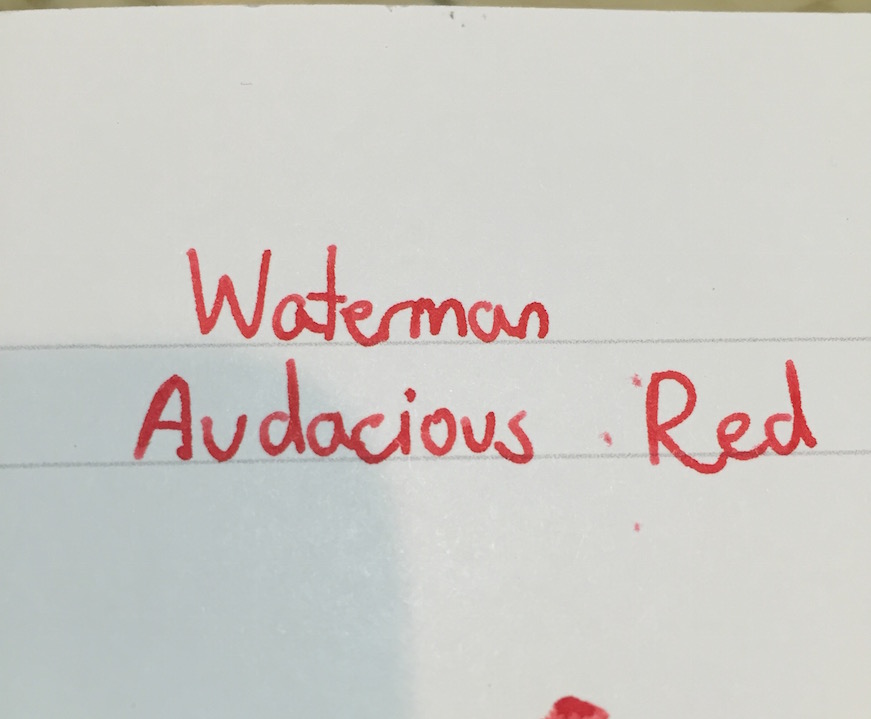 Waterman
Audacious Red